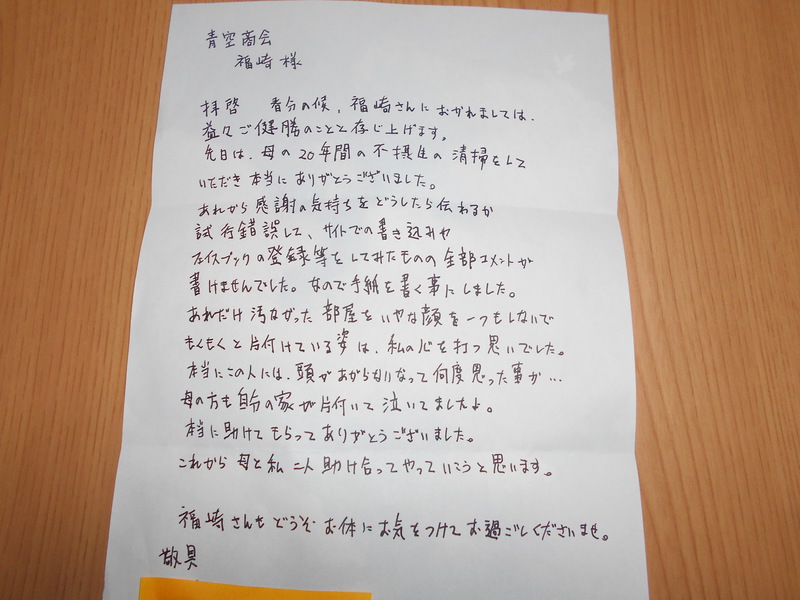 青空商会
福崎様
拝啓 春分の候、福崎さんにおかれましては、
益々ご健勝のことと存じ上げます。
先日は、母の20年間の不摂生の清掃をして
いただき本当にありがとうございました。
あれから感謝の気持ちをどうしたら伝わるか
試行錯誤して、サイトでの書き込みや
フェイスブックの登録等をしてみたものの全部コメントが
書けませんでした。なので手紙を書く事にしました。
あれだけ汚なかった部屋をいやな顔を一つもしないで
もくもくと片付けている姿は、私の心を打つ思いでした。
本当にこの人には、頭があがらないなって何度思った事か…
母の方も自分の家が片付いて泣いてましたよ。
本当に助けてもらってありがとうございました。
これから母と私二人助け合ってやっていこうと思います。
福崎さんもどうぞお体にお気をつけてお過ごしくださいませ。
敬具